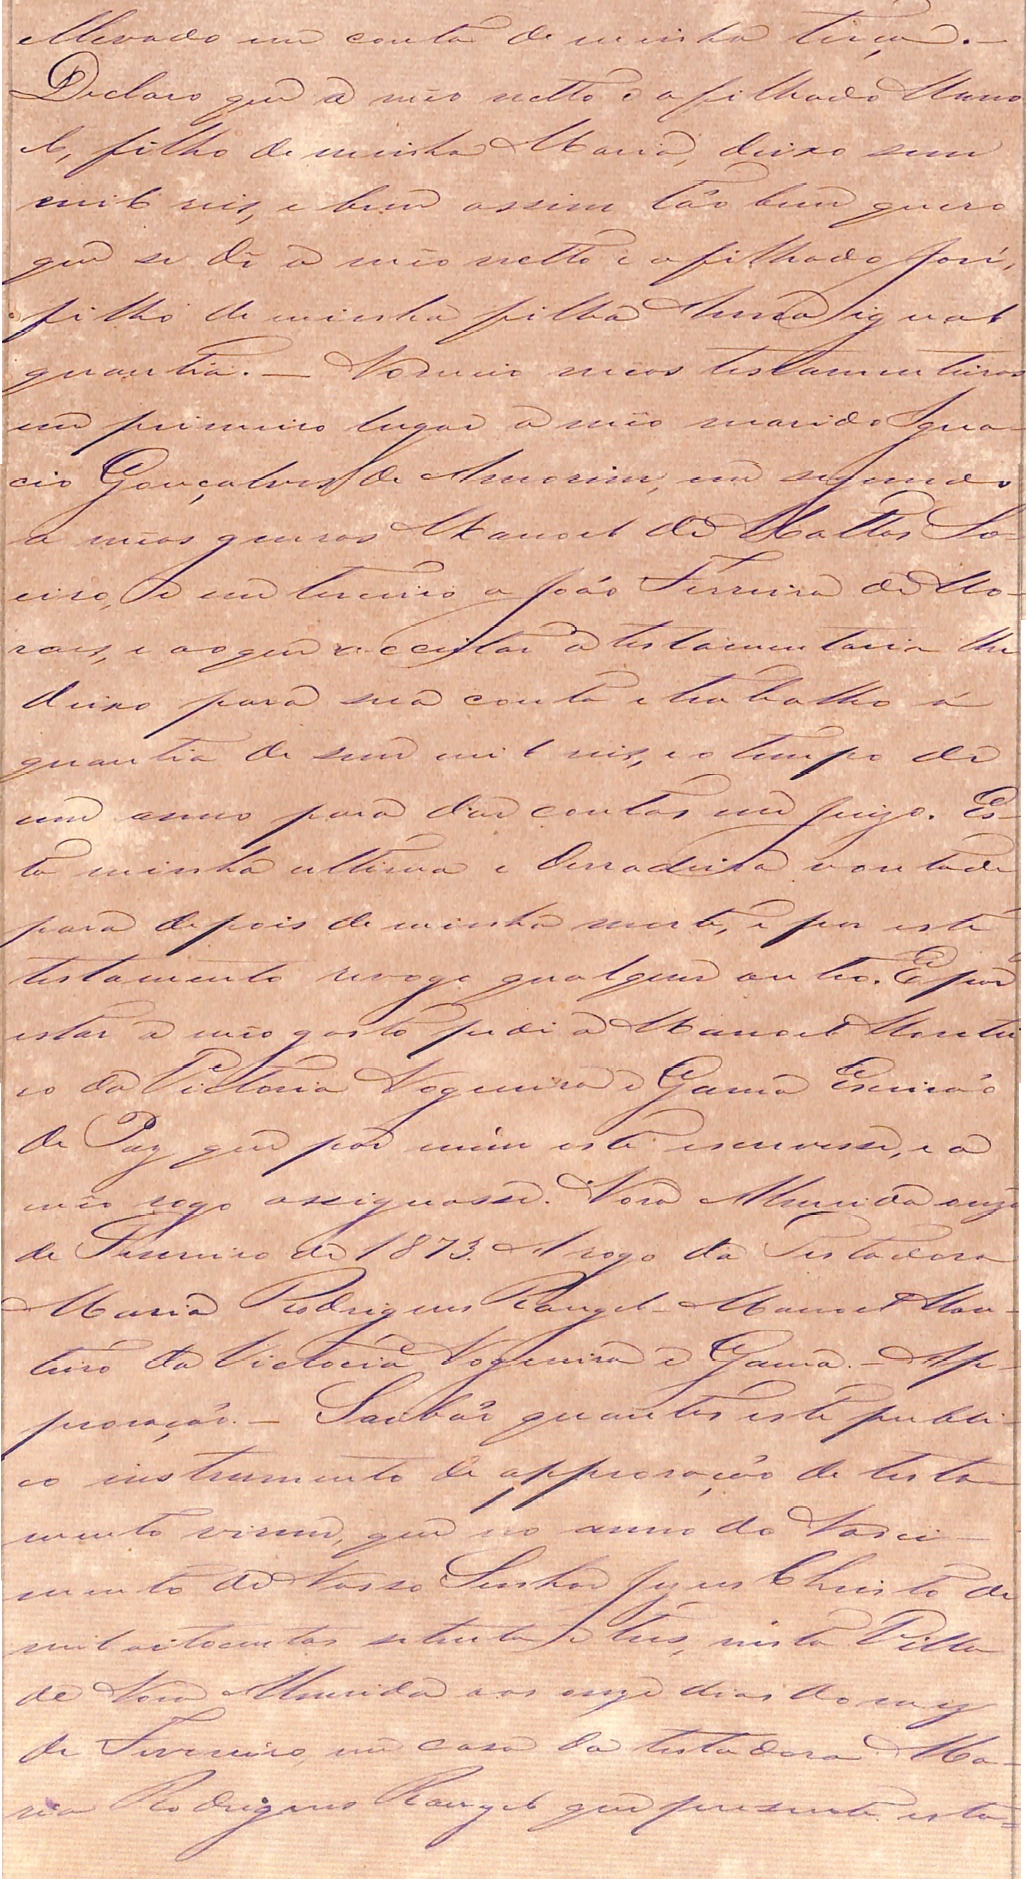 ellevado em conta de minha terça. —
Declaro que a mêo netto e afilhado Mano
el, filho de minha Maria, deixo cem
mil reis, e bem assim tão bem quero
que se dê a mêo netto e afilhado José,
filho de minha filha Anna igual
quantia. — Nomeio mêos testamenteiros
em primeiro lugar a mêo marido Igna-
cio Gonçalves de Amorim, em segundo
a mêos genros Manoel de Mattos
e em terceiro a João Ferreira de Mo-
raes, e ao que acceitar a testamentaria lhe
deixo para sua conta e trabalho a
quantia de cem mil reis, e o tempo de
um anno para dar contas em juizo. Es-
ta minha ultima e derradeira vontade
para depois de minha morte, e por este
testamento revogo qualquer outro. E por
estar a mêo gosto pedi a Manoel Montei
ro da Victoria Nogueira e Gama Escrivão
de Paz que por mim este escrevesse, e a
mêo rogo assignasse. Nova Almeida onze
de Fevereiro de 1873. A rogo da Testadora
Maria Rodrigues Rangel — Manoel Mon-
teiro da Victoria Nogueira e Gama. — Ap-
provação. — Saibão quantos este publi-
co instrumento de approvação de testa
mento virem, que no anno do Nasci-
mento de Nosso Senhor Jesus Christo de
mil oitocentos setenta e tres, nesta Villa
de Nova Almeida aos onze dias do mez
de Fevereiro, em casa da testadora Ma-
ria Rodrigues Rangel que presente esta-